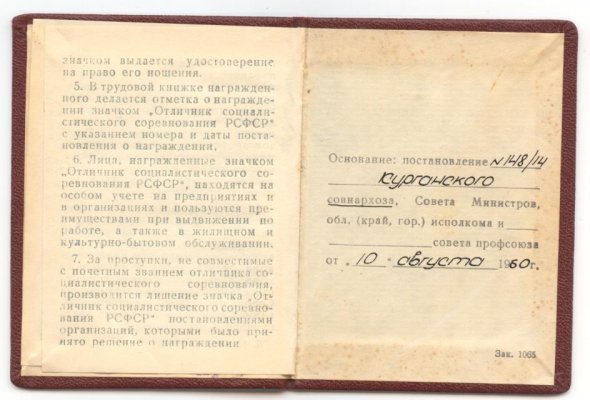 значком выдается удостоверение
на право его ношения.
5. В трудовой книжке награжден-
ного делается отметка о награжде-
нии значком „Отличник социали-
стического соревнования РСФСР“
с указанием номера и даты поста-
новления о награждении.
6. Лица, награжденные значком
„Отличник социалистического со-
ревнования РСФСР“, находятся на
особом учете на предприятиях и
в организациях и пользуются пре-
имуществами при выдвижении по
работе, а также в жилищном и
культурно-бытовом обслуживании.
7. За проступки, не совместимые
с почетным званием отличника со-
циалистического соревнования,
производится лишение значка „От-
личник социалистического соревно-
вания РСФСР“ постановлениями
организаций, которыми было при-
нято решение о награждении
Основание: постановление N 148/14
Курганского
совнархоза, Совета Министров,
обл. (край, гор.) исполкома и
совета профсоюза
от „10“ августа 1960г.
Зак. 1065